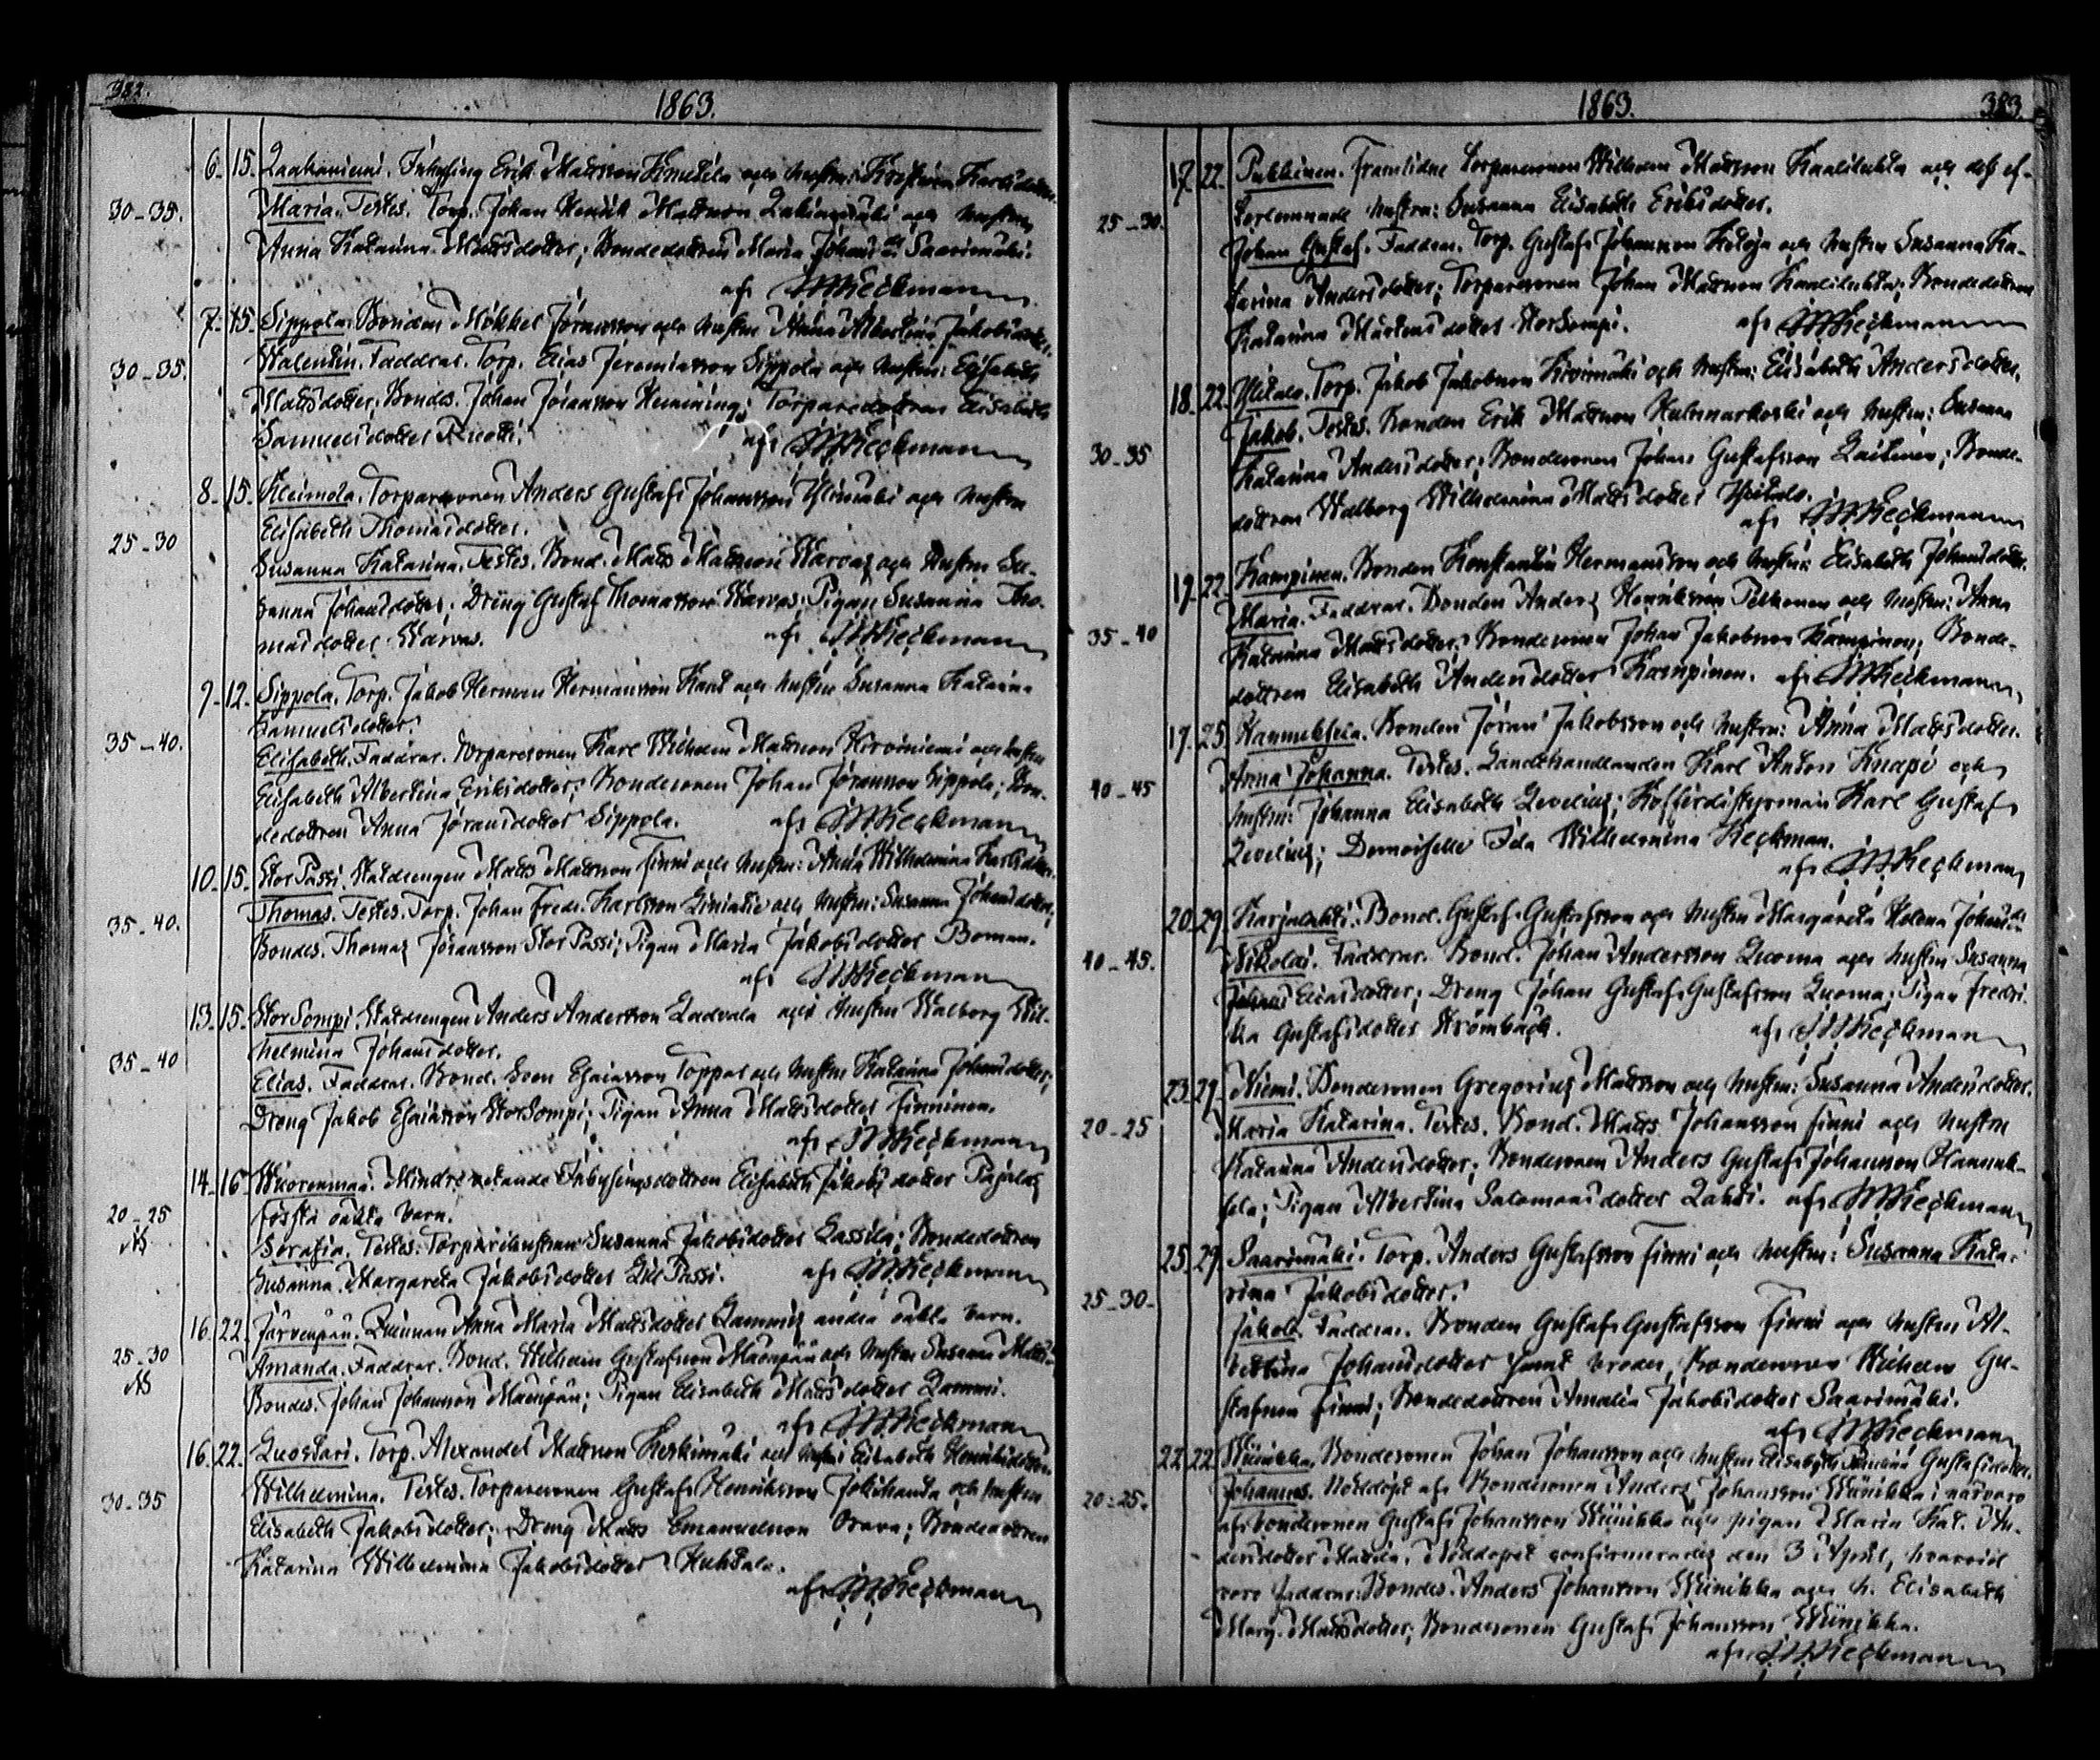 382.
1863.
6. 15. Laakaniemi. Inhysing Erik Mattsson Knuutila och hustru: Kristina Karlsdotter.
30-35. Maria. Testes. Torp. Johan Henrik Mattsson och hustru
Anna Katarina Mattsdotter; Bondedottren Maria Johansdr Saarimäki.
af JWHeckman
7. 15. Sippola. Bonden Mikkel Göransson och hustru Anna Albertina Jakobsdotter.
30-35. Walentin. Faddrar. Torp. Elias Jeremiasson Sippola och hustru: Elisabeth
Mattsdotter; Bondes. Johan Göransson Henning; Torparedottren Elisabeth
Samuelsdotter
af JWHeckman
8. 15. Kleimola. Torparesonen Anders Gustaf Johansson Ylimäki och hustru
25-30 Elisabeth Thomasdotter.
Susanna Katarina. Testes. Bond. Matts Mattsson Warvas och hustru Su-
sanna Johansdotter; Dräng Gustaf Thomasson Warvas; Pigan Susanna Tho-
masdotter Warvas.
af JWHeckman
9. 12. Sippola. Torp. Jakob Herman Hermansson Kant och hustru Susanna Katarina
Samuelsdotter.
35-40. Elisabeth. Faddrar. Torparesonen Karl Wilhelm Mattsson Kiviniemi och hustru
Elisabeth Albertina Eriksdotter; Bondesonen Johan Göransson Sippola; Bon-
dedottren Anna Göransdotter Sippola.
af JWHeckman
10. 15. Stor Passi. Statdrengen Matts Mattsson Finni och hustru: Anna Wilhelmina Karlsdotter.
35-40. Thomas. Testes. Torp. Johan Fredr. Karlsson och hustru: Susanna Johansdotter;
Bondes. Thomas Göransson Stor Passi; Pigan Maria Jakobsdotter Boman.
af JWHeckman
13. 15. Stor Sompi. Statdrengen Anders Andersson Ladvala och hustru Walborg Wil-
helmina Johansdotter.
35-40 Elias. Faddrar. Bond. Sven Esaiasson Toppar och hustru Katarina Johansdotter;
Dreng Jakob Esaiasson Stor Sompi; Pigan Anna Mattsdotter Finninen.
af JWHeckman
14. 16. Wuorenmaa. Mindre vetande Inhysingsdottren Elisabeth Jakobsdotter
20-25 första oäkta barn.
Serafia. Testes: Torparehustrun Susanna Jakobsdotter Lassila; Bondedottren
Susanna Margareta Jakobsdotter Lill Passi.
af JWHeckman
16. 22. Järvenpää. Quinnan Anna Maria Mattsdotter andra oäkta barn.
25-30 Amanda. Faddrar. Bond. Wilhelm Gustafsson Mäenpää och hustru Susanna
Bondes. Johan Johansson Mäenpää; Pigan Elisabeth Mattsdotter Lammi.
af JWHeckman
16. 22. Luostari. Torp. Alexander Mattsson Keskimäki och hustru Elisabeth Henriksdotter.
30-35 Wilhelmina. Testes. Torparesonen Gustaf Henriksson Jokihauta och hustru
Elisabeth Jakobsdotter; Dreng Matts Emanuelsson Orava; Bondedottren
Katarina Wilhelmina Jakobsdotter Huhtala.
af JWHeckman
1863.
383.
17. 22. Pukkinen. Framlidne Torparesonen Wilhelm Mattsson Kaalilukta och dess ef-
25-30. terlemnade hustru: Susanna Elisabeth Eriksdotter.
Johan Gustaf. Faddrar. Torp. Gustaf Johansson Ketoja och hustru Susanna Ka-
tarina Andersdotter; Torparesonen Johan Mattsson Kaalilukta; Bondedottren
Katarina Mårtensdotter Stor Sompi.
af JWHeckman
18. 22. Ylitalo. Torp. Jakob Jakobsson Kivimäki och hustru: Elisabeth Andersdotter.
30-35 Jakob. Testes. Bonden Erik Mattsson Hulmarkoski och hustru: Susanna
Katarina Andersdotter; Bondesonen Johan Gustafsson Laitinen; Bonde-
dottren Walborg Wilhelmina Mattsdotter Ylitalo.
af JWHeckman
19. 22. Kampinen. Bonden Konstantin Hermansson och hustru: Elisabeth Johansdotter.
35-40 Maria. Faddrar. Bonden Anders Henriksson Pelkonen och hustru: Anna
Katarina Mattsdotter; Bondesonen Johan Jakobsson Kampinen; Bonde-
dottren Elisabeth Andersdotter Kampinen.
af JWHeckman
17. 25. Hannuksela. Bonden Göran Jakobsson och hustru: Anna Mattsdotter.
40-45 Anna Johanna. Testes. Landthandlanden Karl Anton Knape och
hustru: Johanna Elisabeth Levelius; Kofferdistyrman Karl Gustaf
Levelius; Demoiselle Ida Wilhelmina Heckman.
af JWHeckman
20. 29. Karjalahti. Bond. Gustaf Gustafsson och hustru Margareta Helena Johansdr
40-45. Nikolai. Faddrar. Bond. Johan Andersson Luoma och hustru Susanna
Eliasdotter; Dreng Johan Gustaf Gustafsson Luoma; Pigan Fredri-
ka Gustafsdotter Strömbäck.
af JWHeckman
23. 29. Niemi. Bondesonen Gregorius Mattsson och hustru: Susanna Andersdotter.
20-25 Maria Katarina. Testes. Bond. Matts Johansson Finni och hustru
Katarina Andersdotter; Bondesonen Anders Gustaf Johansson Hannuk-
sela; Pigan Albertina Salomonsdotter Lahti.
af JWHeckman
25. 29. Saarimäki. Torp. Anders Gustafsson Finni och hustru: Susanna Kata-
25-30. rina Jakobsdotter.
Jakob. Faddrar. Bonden Gustaf Gustafsson Finni och hustru Al-
bertina Johansdotter samt broder, Bondesonen Wilhelm Gu-
stafsson Finni; Bondedottren Amalia Jakobsdotter Saarimäki.
af JWHeckman
22. 22. Wiinikka. Bondesonen Johan Johansson och hustru Elisabeth Gustafsdotter.
20-25. Johannes. Nöddöpt af Bondesonen Anders Johansson Wiinikka i närvaro
af bondesonen Gustaf Johansson Wiinikka och pigan Maria Kat. An-
dersdotter Mattila. Nöddopet confirmerades den 3 April, hvarvid
voro faddrar: Bondes. Anders Johansson Wiinikka och h. Elisabeth
Marg. Mattsdotter; Bondesonen Gustaf Johansson Wiinikka.
af JWHeckman